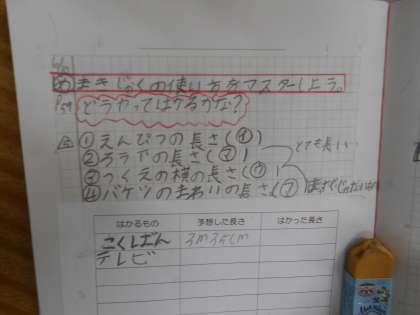 め まきじゃくの使い方をマスターしよう。
P.59 どうやってはかるかな?
① えんぴつの長さ(イ)
② ろう下の長さ(エ) とても長い
③ つくえの横の長さ(ウ)
④ バケツのまわりの長さ(ア)
はかるもの 予想した長さ はかった長さ
こくばん 3m35cm
テレビ